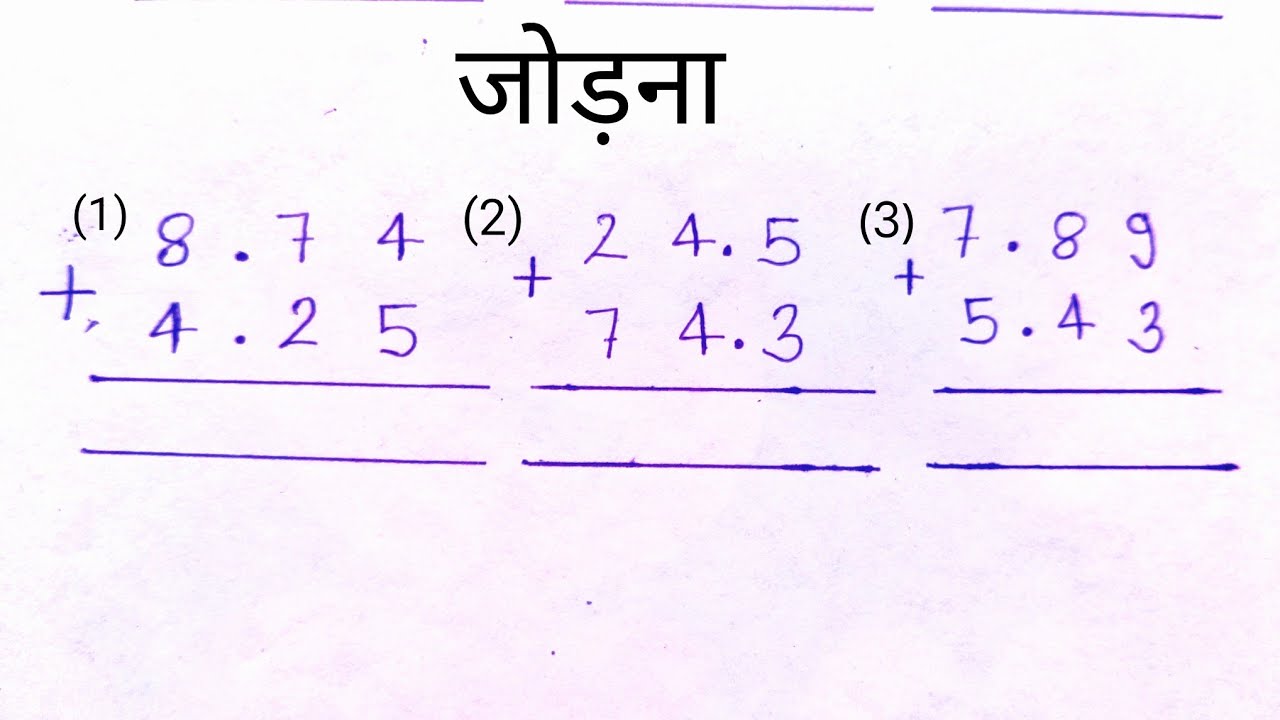 जोड़ना
(1) 8.74 (2) 24.5 (3) 7.89
+ 4.25 + 74.3 + 5.43